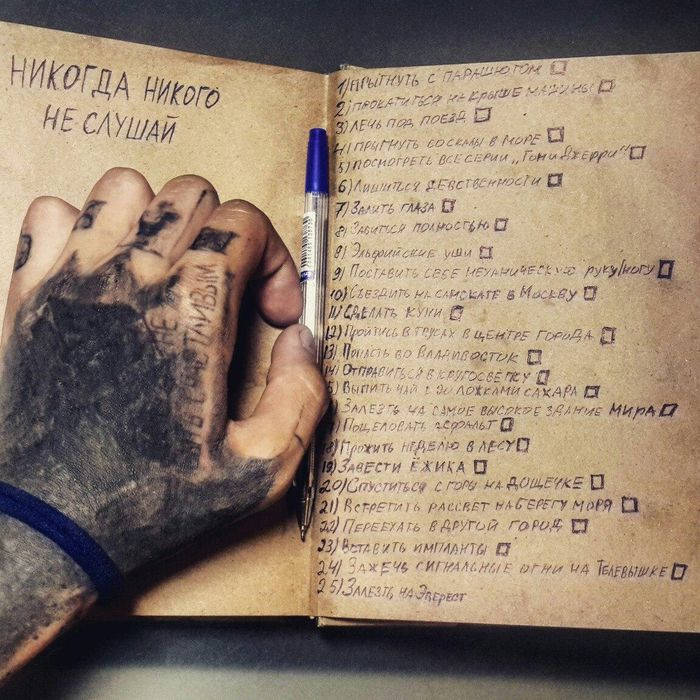 НИКОГДА НИКОГО
НЕ СЛУШАЙ
НЕ
СЧАСТЛИВЫМ
1) ПРЫГНУТЬ С ПАРАШЮТОМ
2) ПРОКАТИТЬСЯ НА КРЫШЕ МАШИНЫ
3) ЛЕЧЬ ПОД ПОЕЗД
4) ПРЫГНУТЬ СО СКАЛЫ В МОРЕ
5) ПОСМОТРЕТЬ ВСЕ СЕРИИ „Том и Джерри"
6) Лишиться девственности
7) Залить глаза
8) Забиться полностью
8) Эльфийские уши
9) Поставить себе механическую руку/ногу
10) Съездить на самокате в Москву
11) Сделать куни
12) Пройтись в трусах в центре города
13) Попасть во Владивосток
14) Отправиться в кругосветку
5) Выпить чай с 20 ложками сахара
Залезть на самое высокое здание мира
) Поцеловать асфальт
) Прожить неделю в лесу
19) ЗАВЕСТИ ЁЖИКА
20) Спуститься с горы на дощечке
21) Встретить рассвет на берегу моря
22) Переехать в другой город
23) Вставить импланты
24) Зажечь сигнальные огни на телевышке
25) Залезть на Эверест